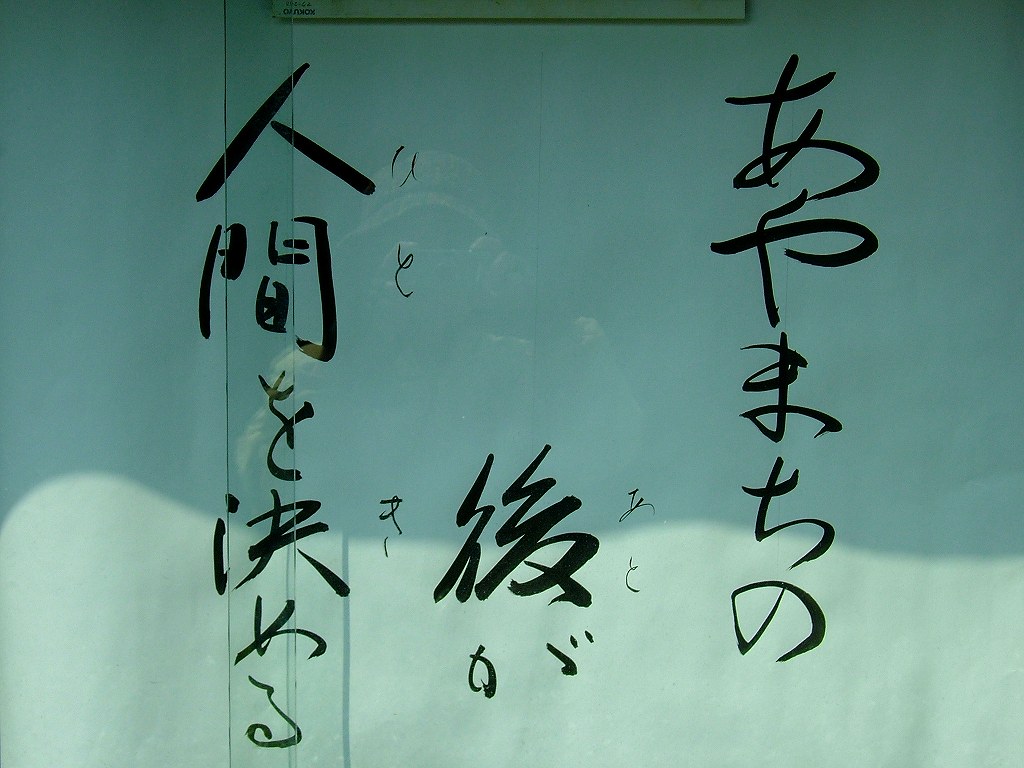 あやまちの
あと
後が
ひと
き
人間を決める
KOKUYO